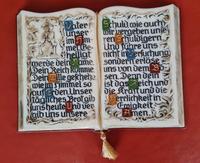 Vater
unser
im
Geheiligt
werde dein Name
Dein Reich komme
Dein Wille geschehe
wie im Himmel so
auf Erden Unser
tägliches Brot gib
uns heute
gib uns unsere
Schuld wie auch
wir vergeben unsern
Schuldigern
Und führe uns
nicht in Versuchung
sondern erlöse
uns von dem
Bösen. Denn dein
ist das Reich
und die Kraft
und die Herr
lichkeit in
Ewigkeit
Amen.